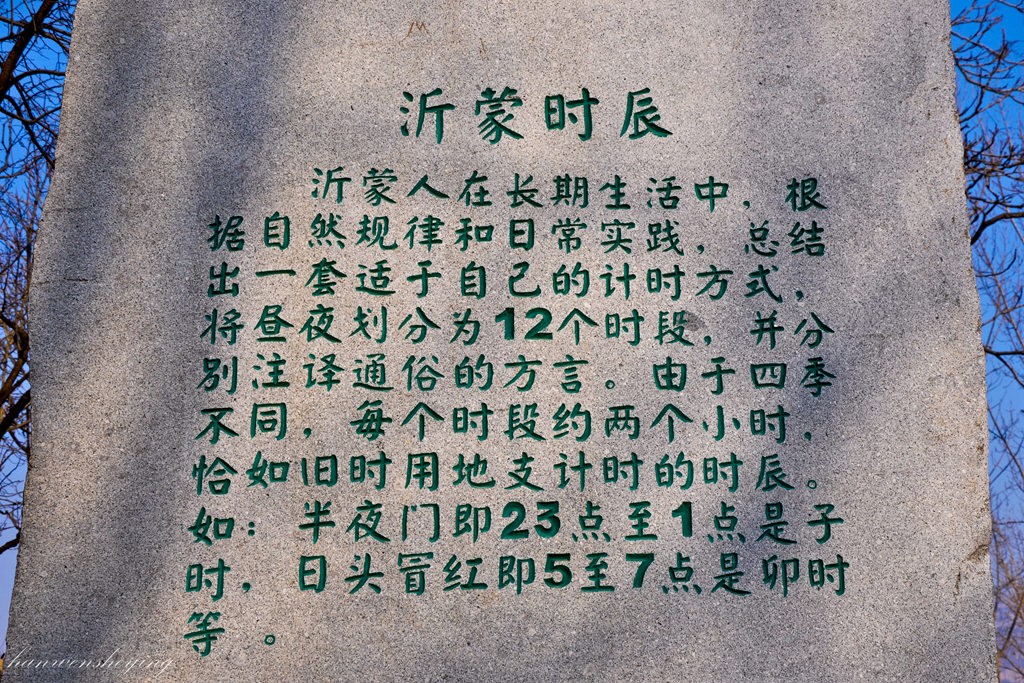 沂蒙时辰
沂蒙人在长期生活中，根
据自然规律和日常实践，总结
出一套适于自己的计时方式，
将昼夜划分为12个时段，并分
别注译通俗的方言。由于四季
不同，每个时段约两个小时，
恰如旧时用地支计时的时辰。
如：半夜门即23点至1点是子
时，日头冒红即5至7点是卯时
等。
hanwensheying